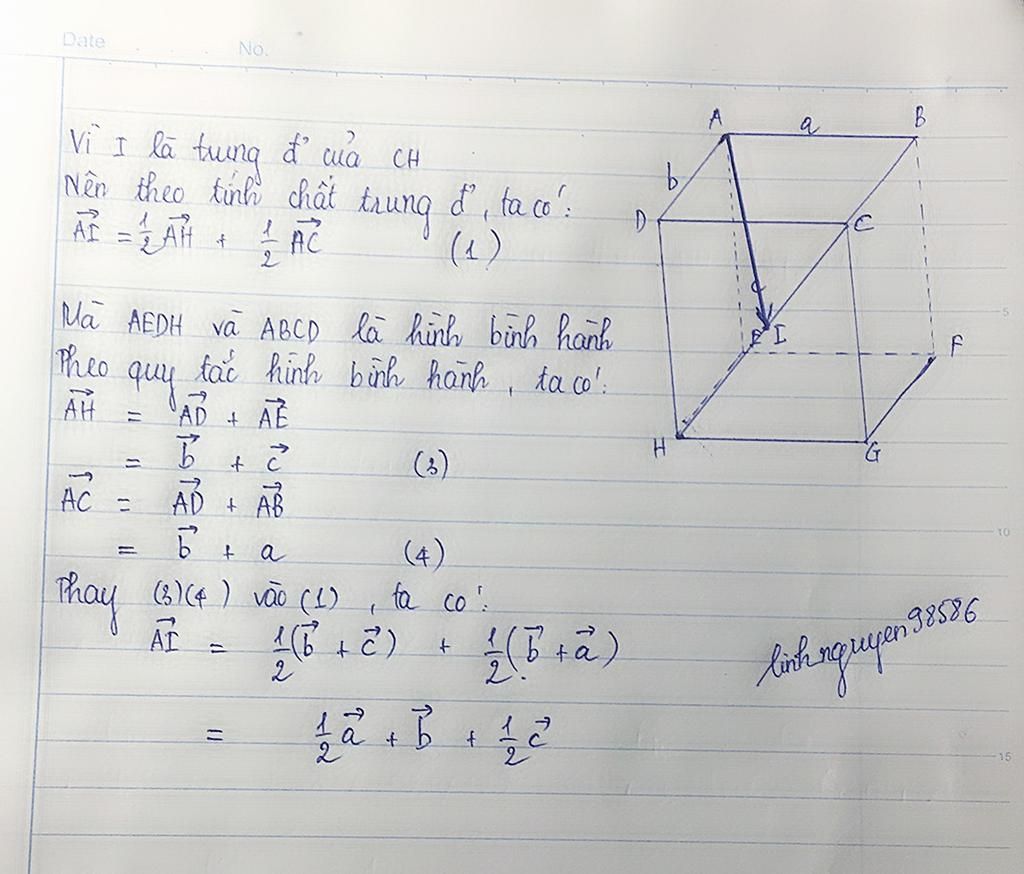 Date No.
Vì I là trung đ' của CH
Nên theo tính chất trung đ', ta có:
$\vec{AI} = \frac{1}{2}\vec{AH} + \frac{1}{2}\vec{AC}$ (1)
Mà AEDH và ABCD là hình bình hành
Theo quy tắc hình bình hành, ta có:
$\vec{AH} = \vec{AD} + \vec{AE}$
$= \vec{b} + \vec{c}$ (3)
$\vec{AC} = \vec{AD} + \vec{AB}$
$= \vec{b} + a$ (4)
Thay (3)(4) vào (1), ta có:
$\vec{AI} = \frac{1}{2}(\vec{b} + \vec{c}) + \frac{1}{2}(\vec{b} + \vec{a})$
$= \frac{1}{2}\vec{a} + \vec{b} + \frac{1}{2}\vec{c}$
A a B
b
D C
c
E I F
H G
linhnguyen98586
5
10
15